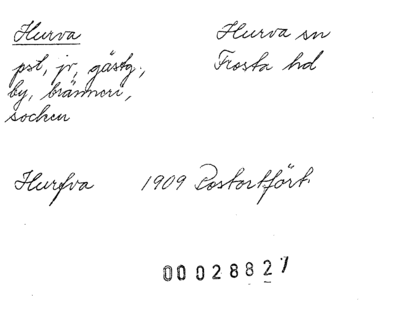 Hurva Hurva sn
pst, jv, gästg., Frosta hd
by, bränneri,
socken
Hurfva 1909 Postortfört.
00028827